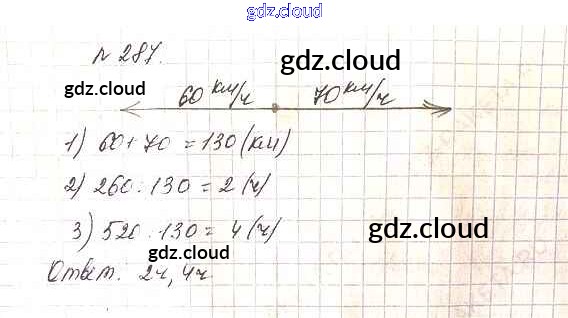 gdz.cloud
№ 287.
gdz.cloud
gdz.cloud
60 км/ч 70 км/ч
1) 60 + 70 = 130 (км)
2) 260 : 130 = 2 (ч)
3) 520 : 130 = 4 (ч)
gdz.cloud
gdz.cloud
Ответ. 2ч, 4ч